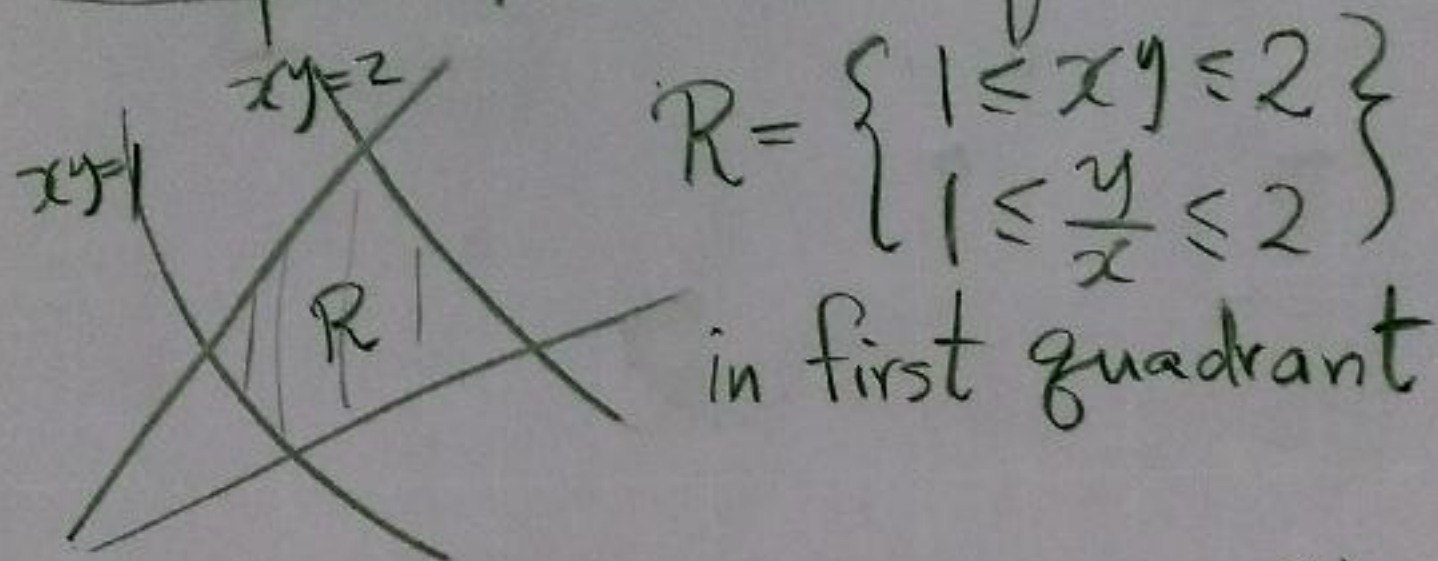 xy=2
xy=1
R
R = { 1 ≤ xy ≤ 2
1 ≤ y/x ≤ 2 }
in first quadrant